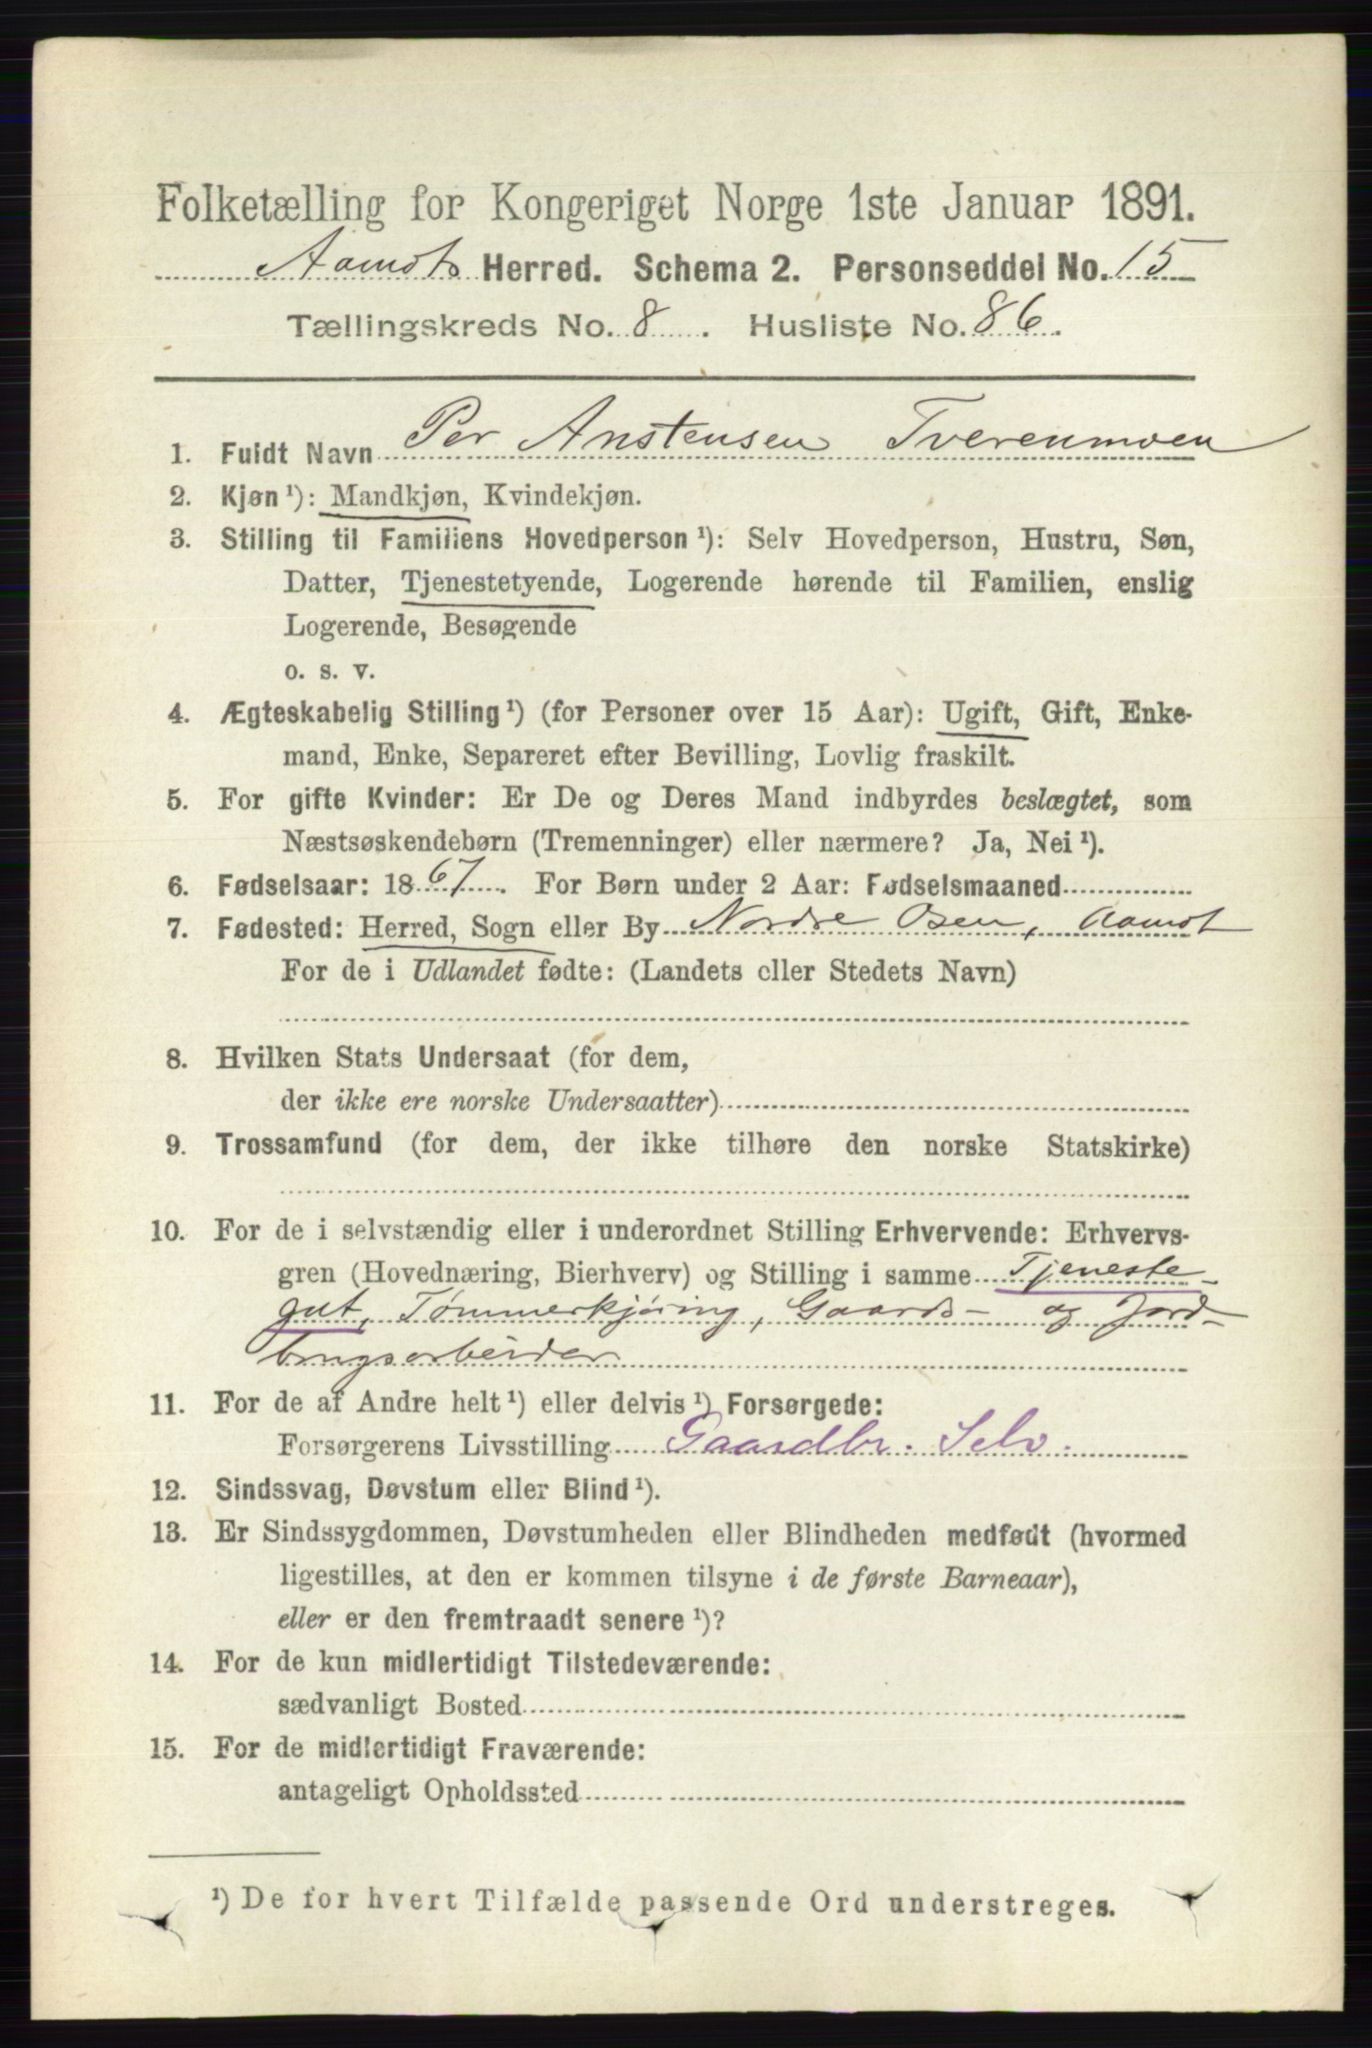 Folketælling for Kongeriget Norge 1ste Januar 1891.
Aamots Herred. Schema 2. Personseddel No. 15
Tællingskreds No. 8. Husliste No. 86.
1. Fuldt Navn Per Anstensen Tverenmoen
2. Kjøn¹): Mandkjøn, Kvindekjøn.
3. Stilling til Familiens Hovedperson¹): Selv Hovedperson, Hustru, Søn,
Datter, Tjenestetyende, Logerende hørende til Familien, enslig
Logerende, Besøgende
o. s. v.
4. Ægteskabelig Stilling¹) (for Personer over 15 Aar): Ugift, Gift, Enke-
mand, Enke, Separeret efter Bevilling, Lovlig fraskilt.
5. For gifte Kvinder: Er De og Deres Mand indbyrdes beslægtet, som
Næstsøskendebørn (Tremenninger) eller nærmere? Ja, Nei¹).
6. Fødselsaar: 1867. For Børn under 2 Aar: Fødselsmaaned
7. Fødested: Herred, Sogn eller By Nordre Osen, Aamot
For de i Udlandet fødte: (Landets eller Stedets Navn)
8. Hvilken Stats Undersaat (for dem,
der ikke ere norske Undersaatter)
9. Trossamfund (for dem, der ikke tilhøre den norske Statskirke)
10. For de i selvstændig eller i underordnet Stilling Erhvervende: Erhvervs-
gren (Hovednæring, Bierhverv) og Stilling i samme Tjeneste-
gut, Tømmerkjøring, Gaards- og Jord-
brugsarbeider
11. For de af Andre helt¹) eller delvis¹) Forsørgede:
Forsørgerens Livsstilling Gaardbr. Selv.
12. Sindssvag, Døvstum eller Blind¹).
13. Er Sindssygdommen, Døvstumheden eller Blindheden medfødt (hvormed
ligestilles, at den er kommen tilsyne i de første Barneaar),
eller er den fremtraadt senere¹)?
14. For de kun midlertidigt Tilstedeværende:
sædvanligt Bosted
15. For de midlertidigt Fraværende:
antageligt Opholdssted
¹) De for hvert Tilfælde passende Ord understreges.